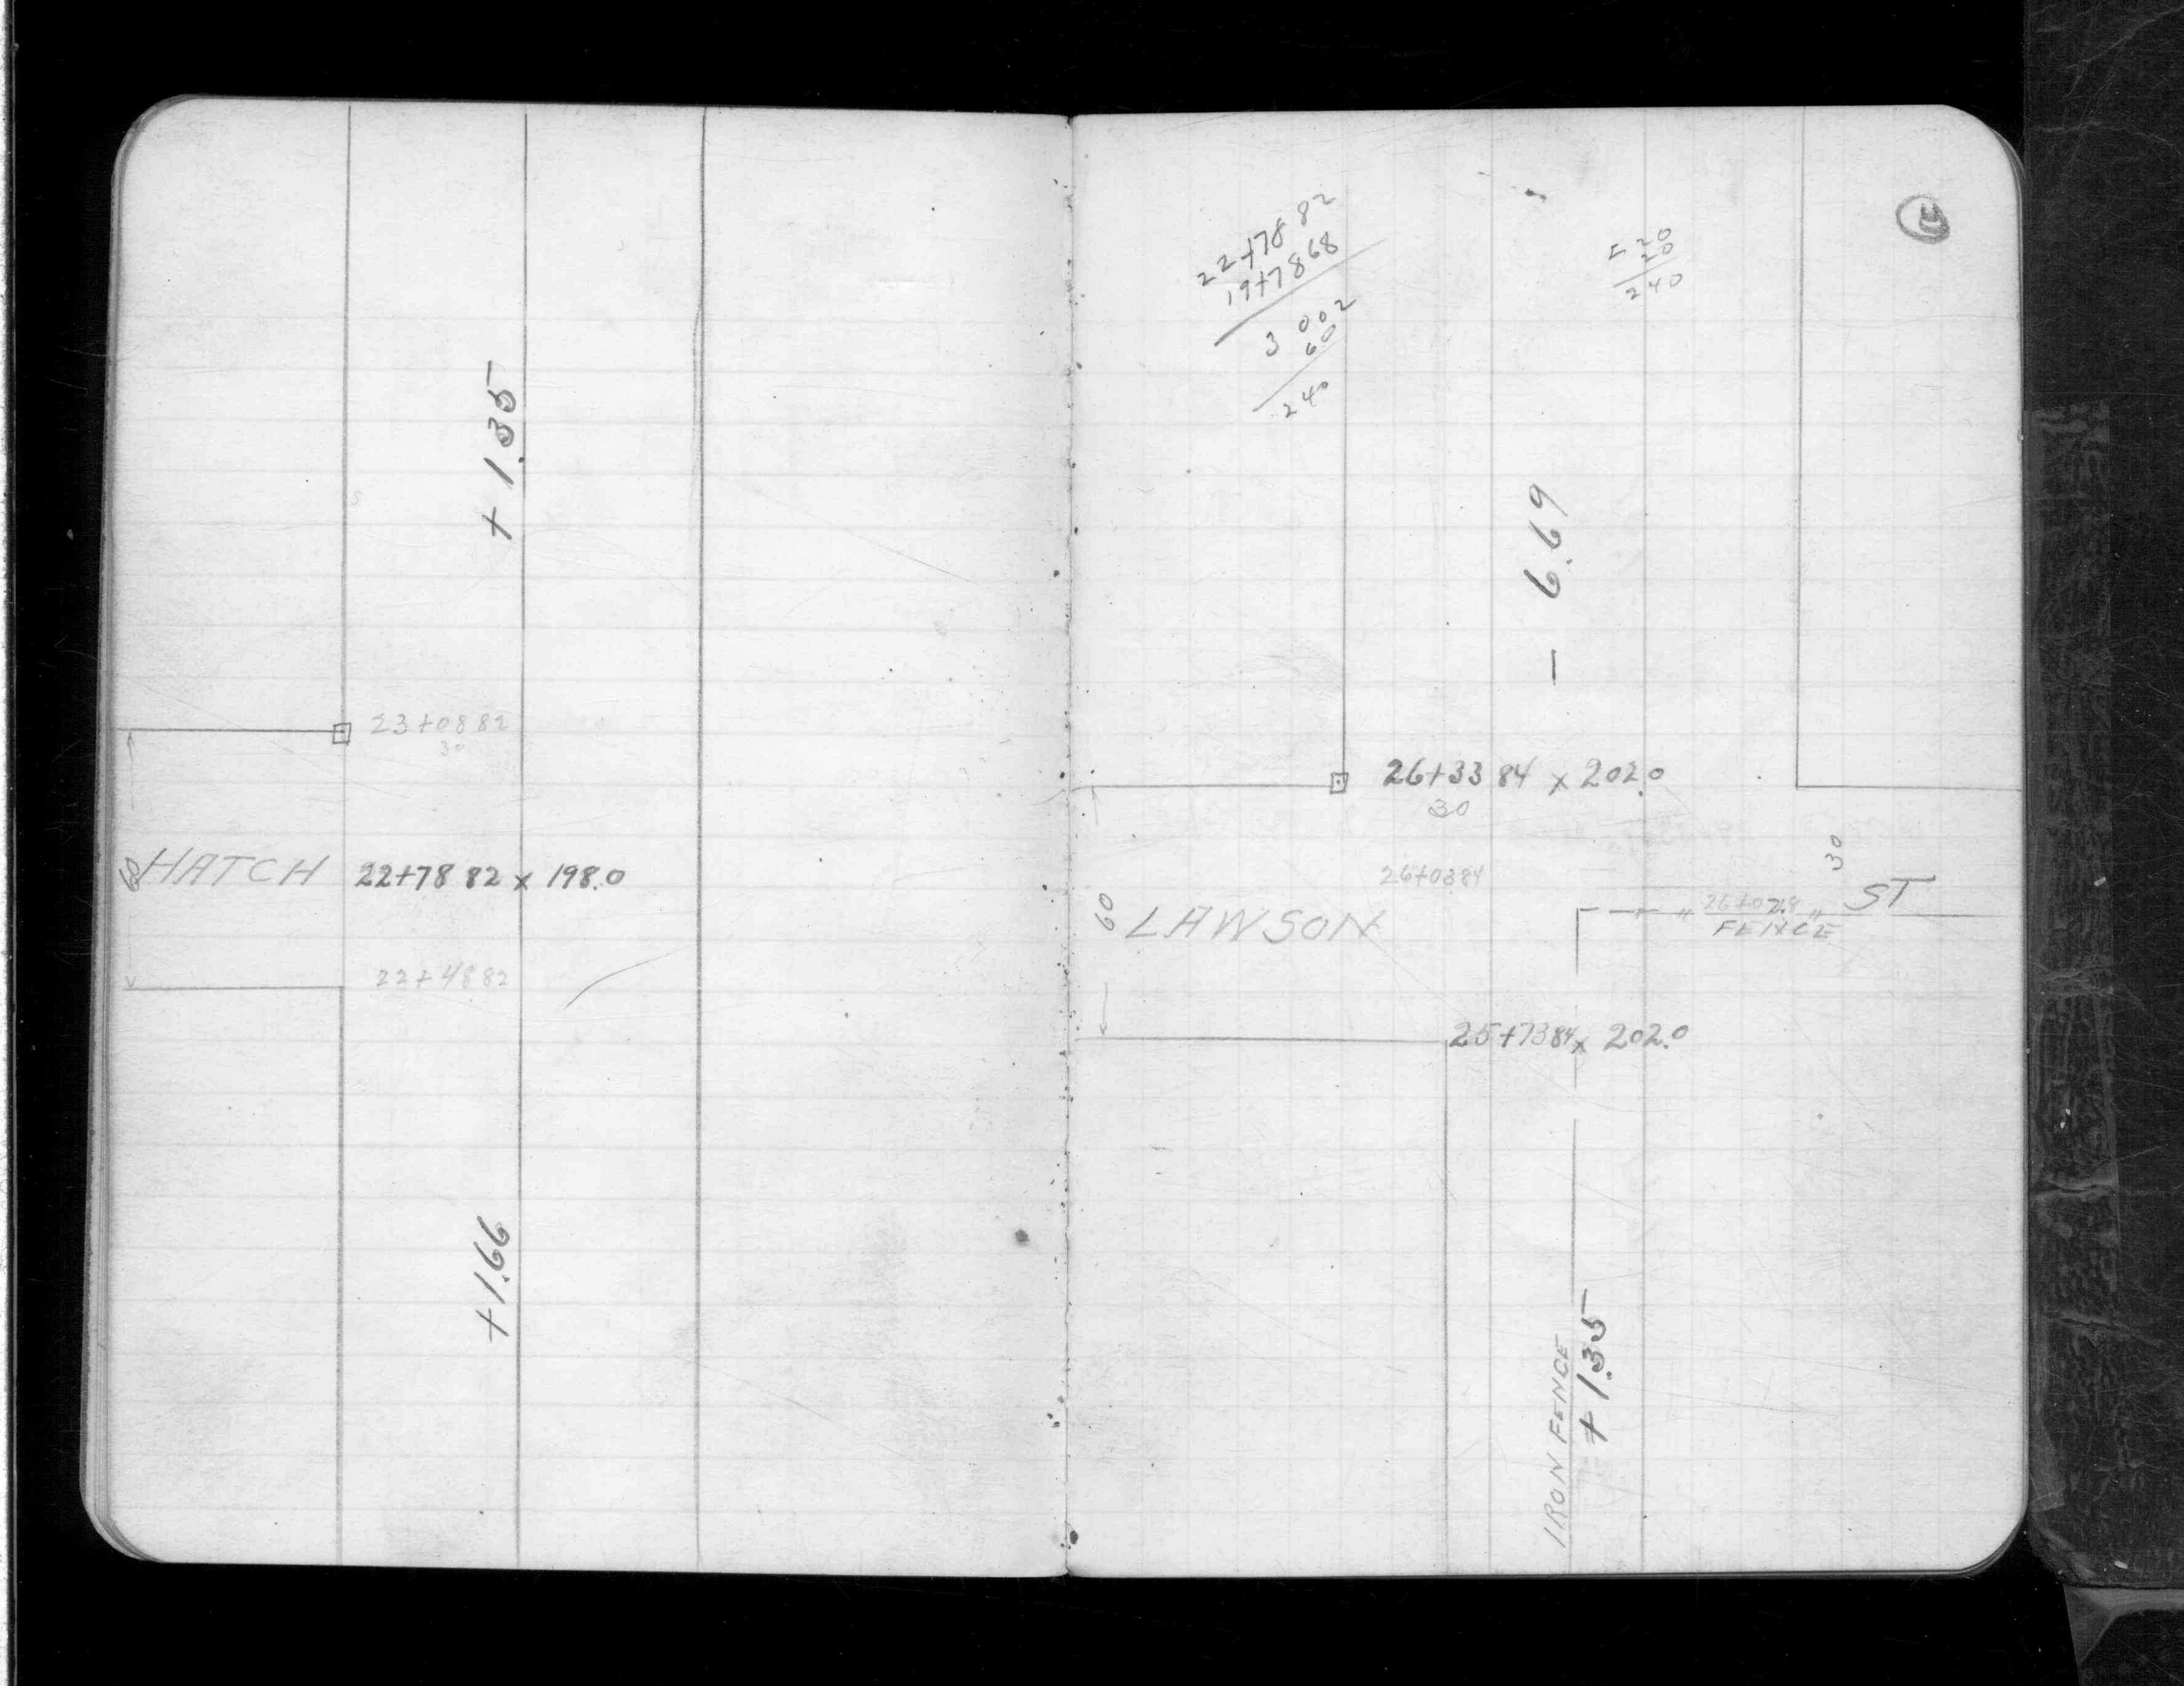 + 1.35
23+08 82
30
60
HATCH 22+78 82 x 198.0
22+48 82
+ 1.66
22+78 82
19+78 68
3 00 2
60
240
20
240
- 6.69
26+33 84 x 202.0
30
26+03 84
30
60
LAWSON ST
FENCE
25+73 84 x 202.0
IRON FENCE
+ 1.35